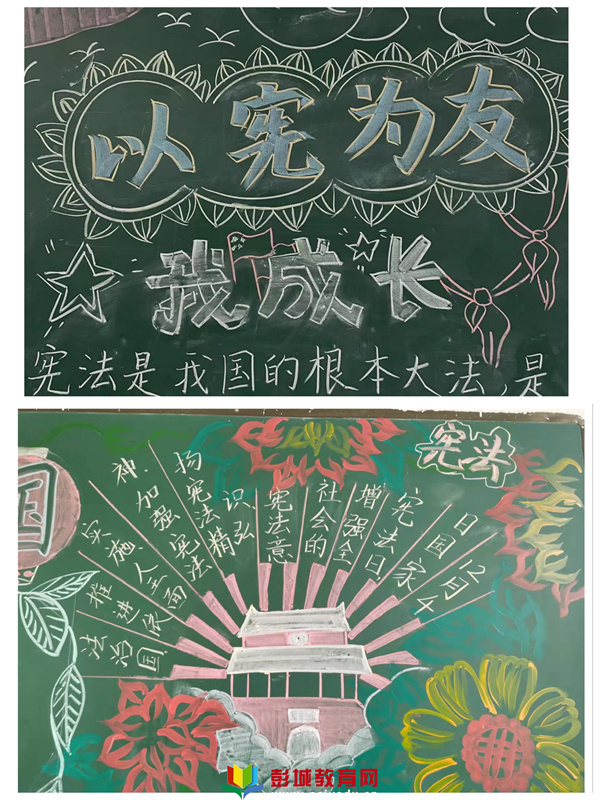 以宪为友
我成长
宪法是我国的根本大法,是
国
宪
12月4
日国家
宪法日
增强全
社会的
宪法意
识弘
扬宪法精
神,加强宪法
实施,全面
推进依
法治国
彭城教育网